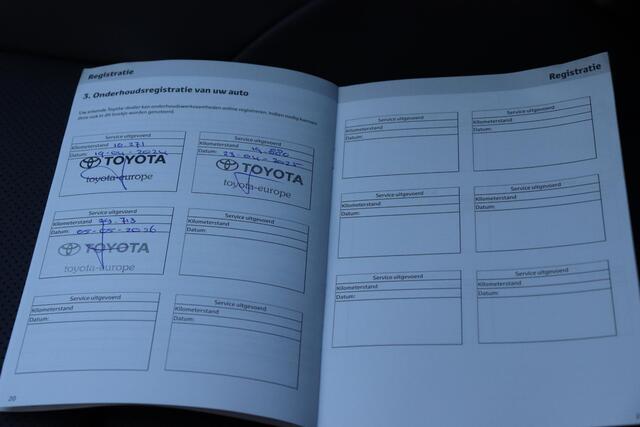 Registratie
3. Onderhoudsregistratie van uw auto
Uw erkende Toyota-dealer kan onderhoudswerkzaamheden online registreren. Indien nodig kan het
ook in dit boekje worden genoteerd.
Service uitgevoerd
Kilometerstand 10.271
Datum: 19-04-2024
TOYOTA
toyota-europe
Service uitgevoerd
Kilometerstand
Datum: 23-04-2025
TOYOTA
toyota-europe
Service uitgevoerd
Kilometerstand 29.713
Datum: 05-05-2026
TOYOTA
toyota-europe
Service uitgevoerd
Kilometerstand
Datum:
Service uitgevoerd
Kilometerstand
Datum:
Service uitgevoerd
Kilometerstand
Datum:
20
Registratie
Service uitgevoerd
Kilometerstand
Datum:
Service uitgevoerd
Kilometerstand
Datum:
Service uitgevoerd
Kilometerstand
Datum:
Service uitgevoerd
Kilometerstand
Datum:
Service uitgevoerd
Kilometerstand
Datum:
Service uitgevoerd
Kilometerstand
Datum: